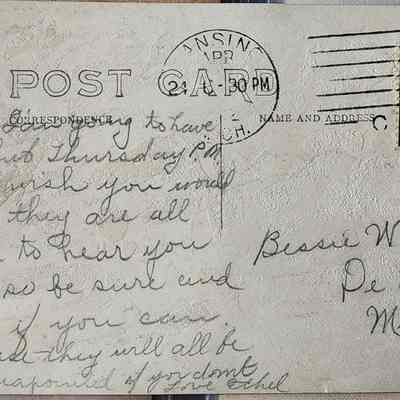 ANSING
APR
POST CARD
24 -30 PM
CH.
CORRESPONDENCE
NAME AND ADDRESS
C
I am going to have
Thursday P.M.
wish you would
they are all
to hear you
so be sure and
if you can.
they will all be
if you don't
Love Ethel
Bessie W
De
M